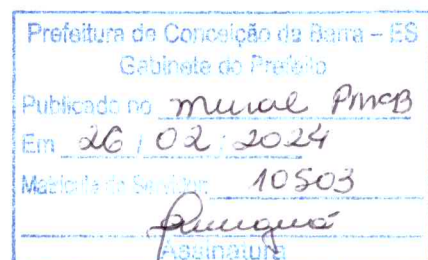 Prefeitura de Conceição da Barra – ES
Gabinete do Prefeito
Publicado no mural PMCB
Em 26 / 02 / 2024
Matrícula do Servidor: 10503
Assinatura